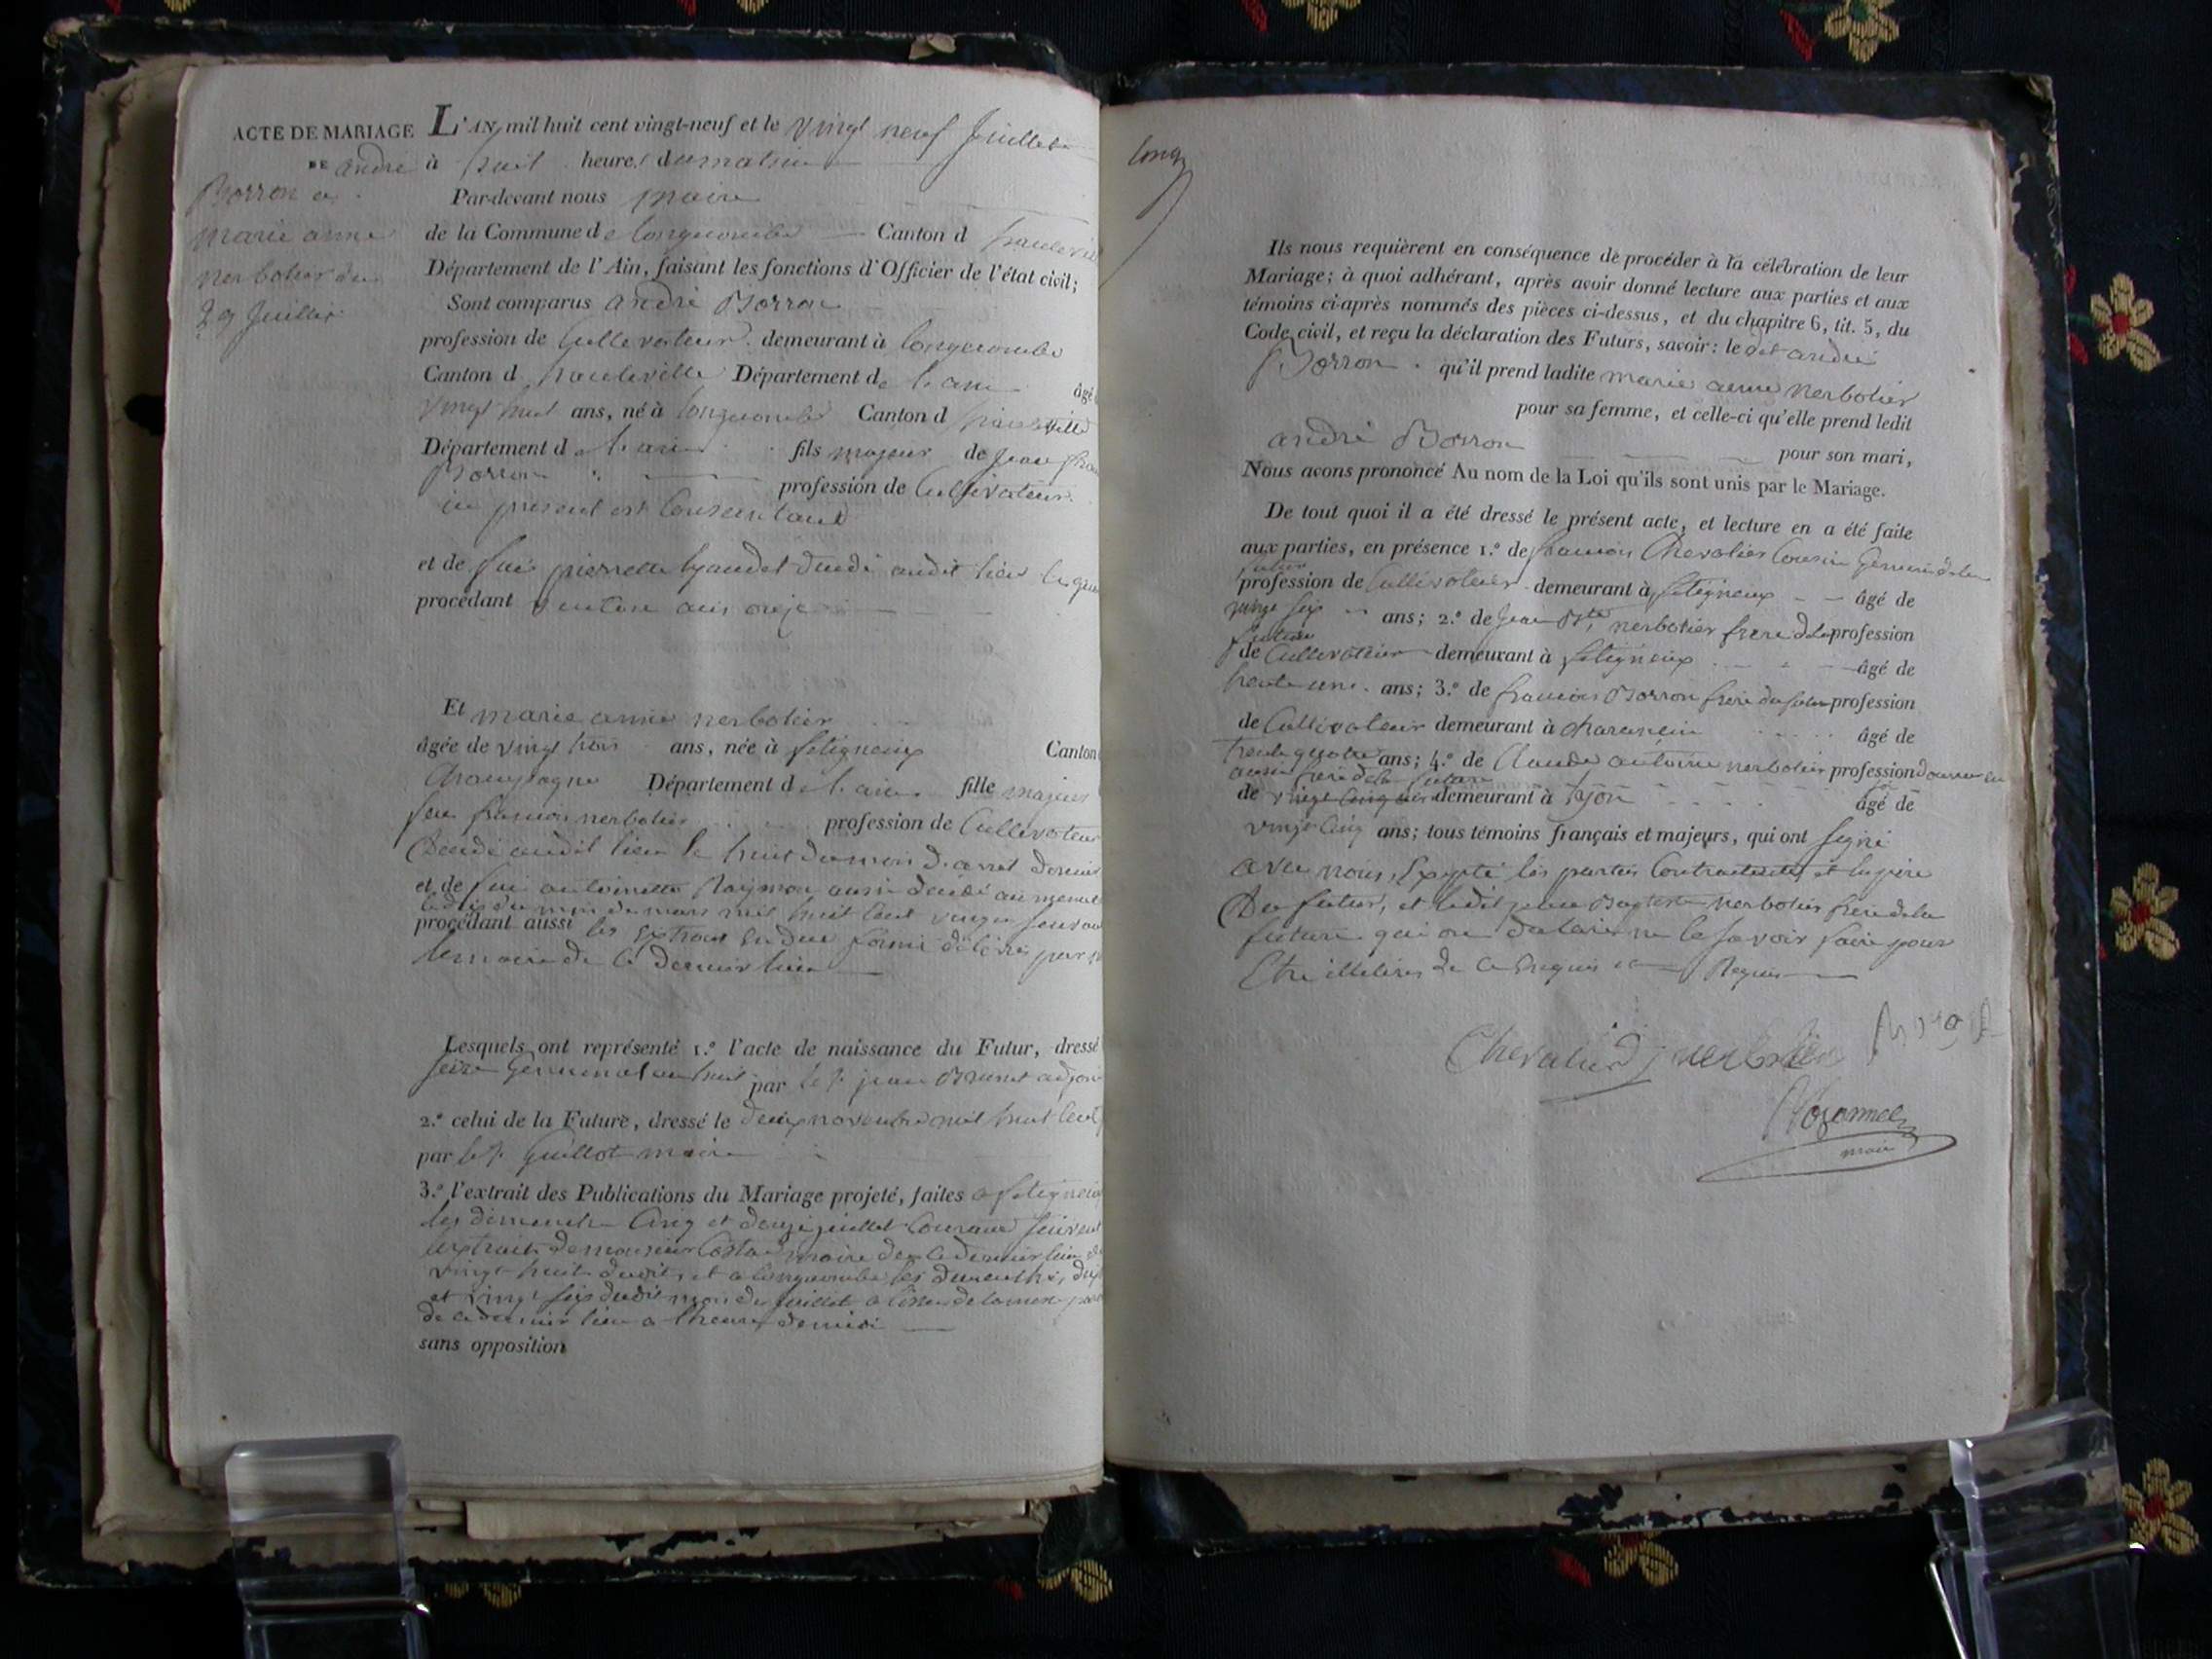 ACTE DE MARIAGE
DE andré
Borron a
marie anne
nerbolier du
29 Juillet
L'AN mil huit cent vingt-neuf et le vingt neuf Juillet
à huit heures du matin
Par-devant nous maire
de la Commune de longecombe Canton d hauteville
Département de l'Ain, faisant les fonctions d'Officier de l'état civil;
Sont comparus andré Borron
profession de Cullivateur demeurant à longecombe
Canton d hauteville Département de l'ain âgé
vingt huit ans, né à longecombe Canton d hauteville
Département de l'ain fils majeur de Jean
Borron profession de Cultivateur
présent et Consentant
et de feue pierrette dudit lieu
procédant
Et marie anne nerbolier
âgée de vingt trois ans, née à Sotigneux Canton
Champagne Département de l'ain fille majeur
feu francois nerbolier profession de Cullivateur
Décédé audit lieu le huit du mois d'avril dernier
et de feue antoinette Raymon aussi décédé au meme
le dix du mois de mars mil huit Cent vingt
procédant aussi les Extrait En due forme délivrés par
le maire de Ce Dernier lieu
Lesquels ont représenté 1.º l'acte de naissance du Futur, dressé
Seize Germinal an huit par le Sr jean Brunet adjoin
2.º celui de la Future, dressé le deux novembre mil huit Cent
par le Sr Guillot maire
3.º l'extrait des Publications du Mariage projeté, faites a Sotigneux
les dimanche Cinq et douze juillet Courant Suivant
lextrait de monsieur Costaz maire de ce dernier lieu
vingt huit dudit, et a longecombe les dimanches, dix
et vingt six dudit mois de Juillet a l'issue de la messe
de ce dernier lieu a lheure de midi
sans opposition
long
Ils nous requièrent en conséquence de procéder à la célébration de leur
Mariage; à quoi adhérant, après avoir donné lecture aux parties et aux
témoins ci-après nommés des pièces ci-dessus, et du chapitre 6, tit. 5, du
Code civil, et reçu la déclaration des Futurs, savoir: le dit andré
Borron qu'il prend ladite marie anne nerbolier
pour sa femme, et celle-ci qu'elle prend ledit
andré Borron pour son mari,
Nous avons prononcé Au nom de la Loi qu'ils sont unis par le Mariage.
De tout quoi il a été dressé le présent acte, et lecture en a été faite
aux parties, en présence 1.º de francois Chevalier Cousin Germain de la
future
profession de Cullivateur demeurant à Sotigneux âgé de
vingt six ans; 2.º de Jean Bte nerbolier frere de la profession
future
de Cullivateur demeurant à Sotigneux âgé de
trente une ans; 3.º de francois Borron frere du futur profession
de Cullivateur demeurant à Charancin âgé de
trente quatre ans; 4.º de Claude antoine nerbolier profession
aussi frere de la future
de vingt Cinq ans demeurant à âgé de
vingt Cinq ans; tous témoins français et majeurs, qui ont signé
avec nous, Excepté les parties Contractantes et le père
Du futur, et ledit jean Baptiste nerbolier frère de la
future qui ont déclaré ne le savoir faire pour
Etre illétirés de Ce Enquis et Requis
Chevalier nerbolier
maire